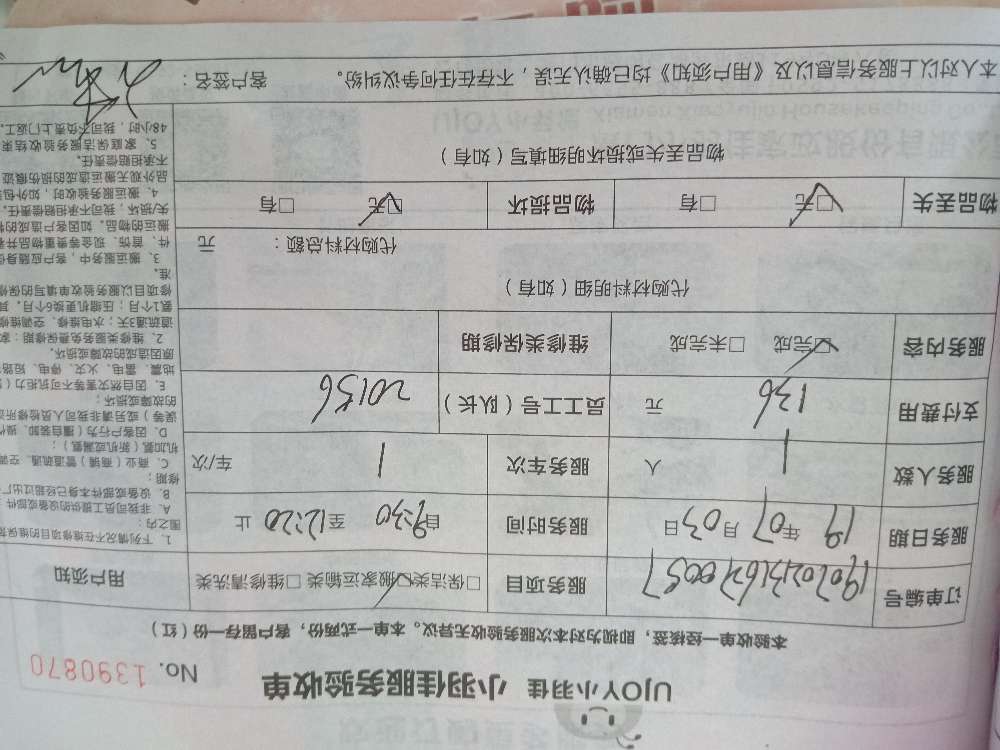 UJOY小羽佳 小羽佳服务验收单
No. 1390870
本验收单一经核签，即视为对本次服务验收无异议。本单一式两份，客户留存一份（红）
订单编号 服务项目 □保洁类 ☑搬家运输类 □维修清洗类 用户须知
服务日期 19 年 07 月 03 日 服务时间 自 9:30 至 12:20 止
服务人数 1 人 服务车次 1 车/次
支付费用 136 元 员工工号（队长） 20156
服务内容 ☑完成 □未完成 维修类保修期
代购材料明细（如有）
代购材料总额： 元
物品丢失 ☑无 □有 物品损坏 ☑无 □有
物品丢失或损坏明细填写（如有）
本人对以上服务信息以及《用户须知》均已确认无误，不存在任何争议纠纷。 客户签名：
1、下列情况不在维修项目的维保范
围之内：
A、非我司员工提供的设备或部件
B、设备或部件本身已经超过出厂
修期；
C、商业（商铺）管道疏通、空调
机加氟（新机或漏氟）；
D、因客户行为（擅自装卸、操作
误等）或另请非我司人员检修所造
的故障或损坏；
E、因自然灾害等不可抗力（
地震、雷电、火灾、停电、短路
原因造成的故障或损坏。
2、维修类服务免费保修期：家
道疏通3天；水电维修、空调维修
氨1个月；压缩机更换6个月。其
修项目以服务验收单填写的保修
准。
3、搬运服务中，客户应随身保
件、首饰、现金等贵重物品并看
搬运的物品。如因客户造成的物
失/损坏，我司不承担赔偿责任。
4、搬运服务验收时，如外包装
品外观无搬运造成的损伤痕迹
不承担赔偿责任。
5、家庭保洁服务验收结束
48小时，我司不负责上门返工